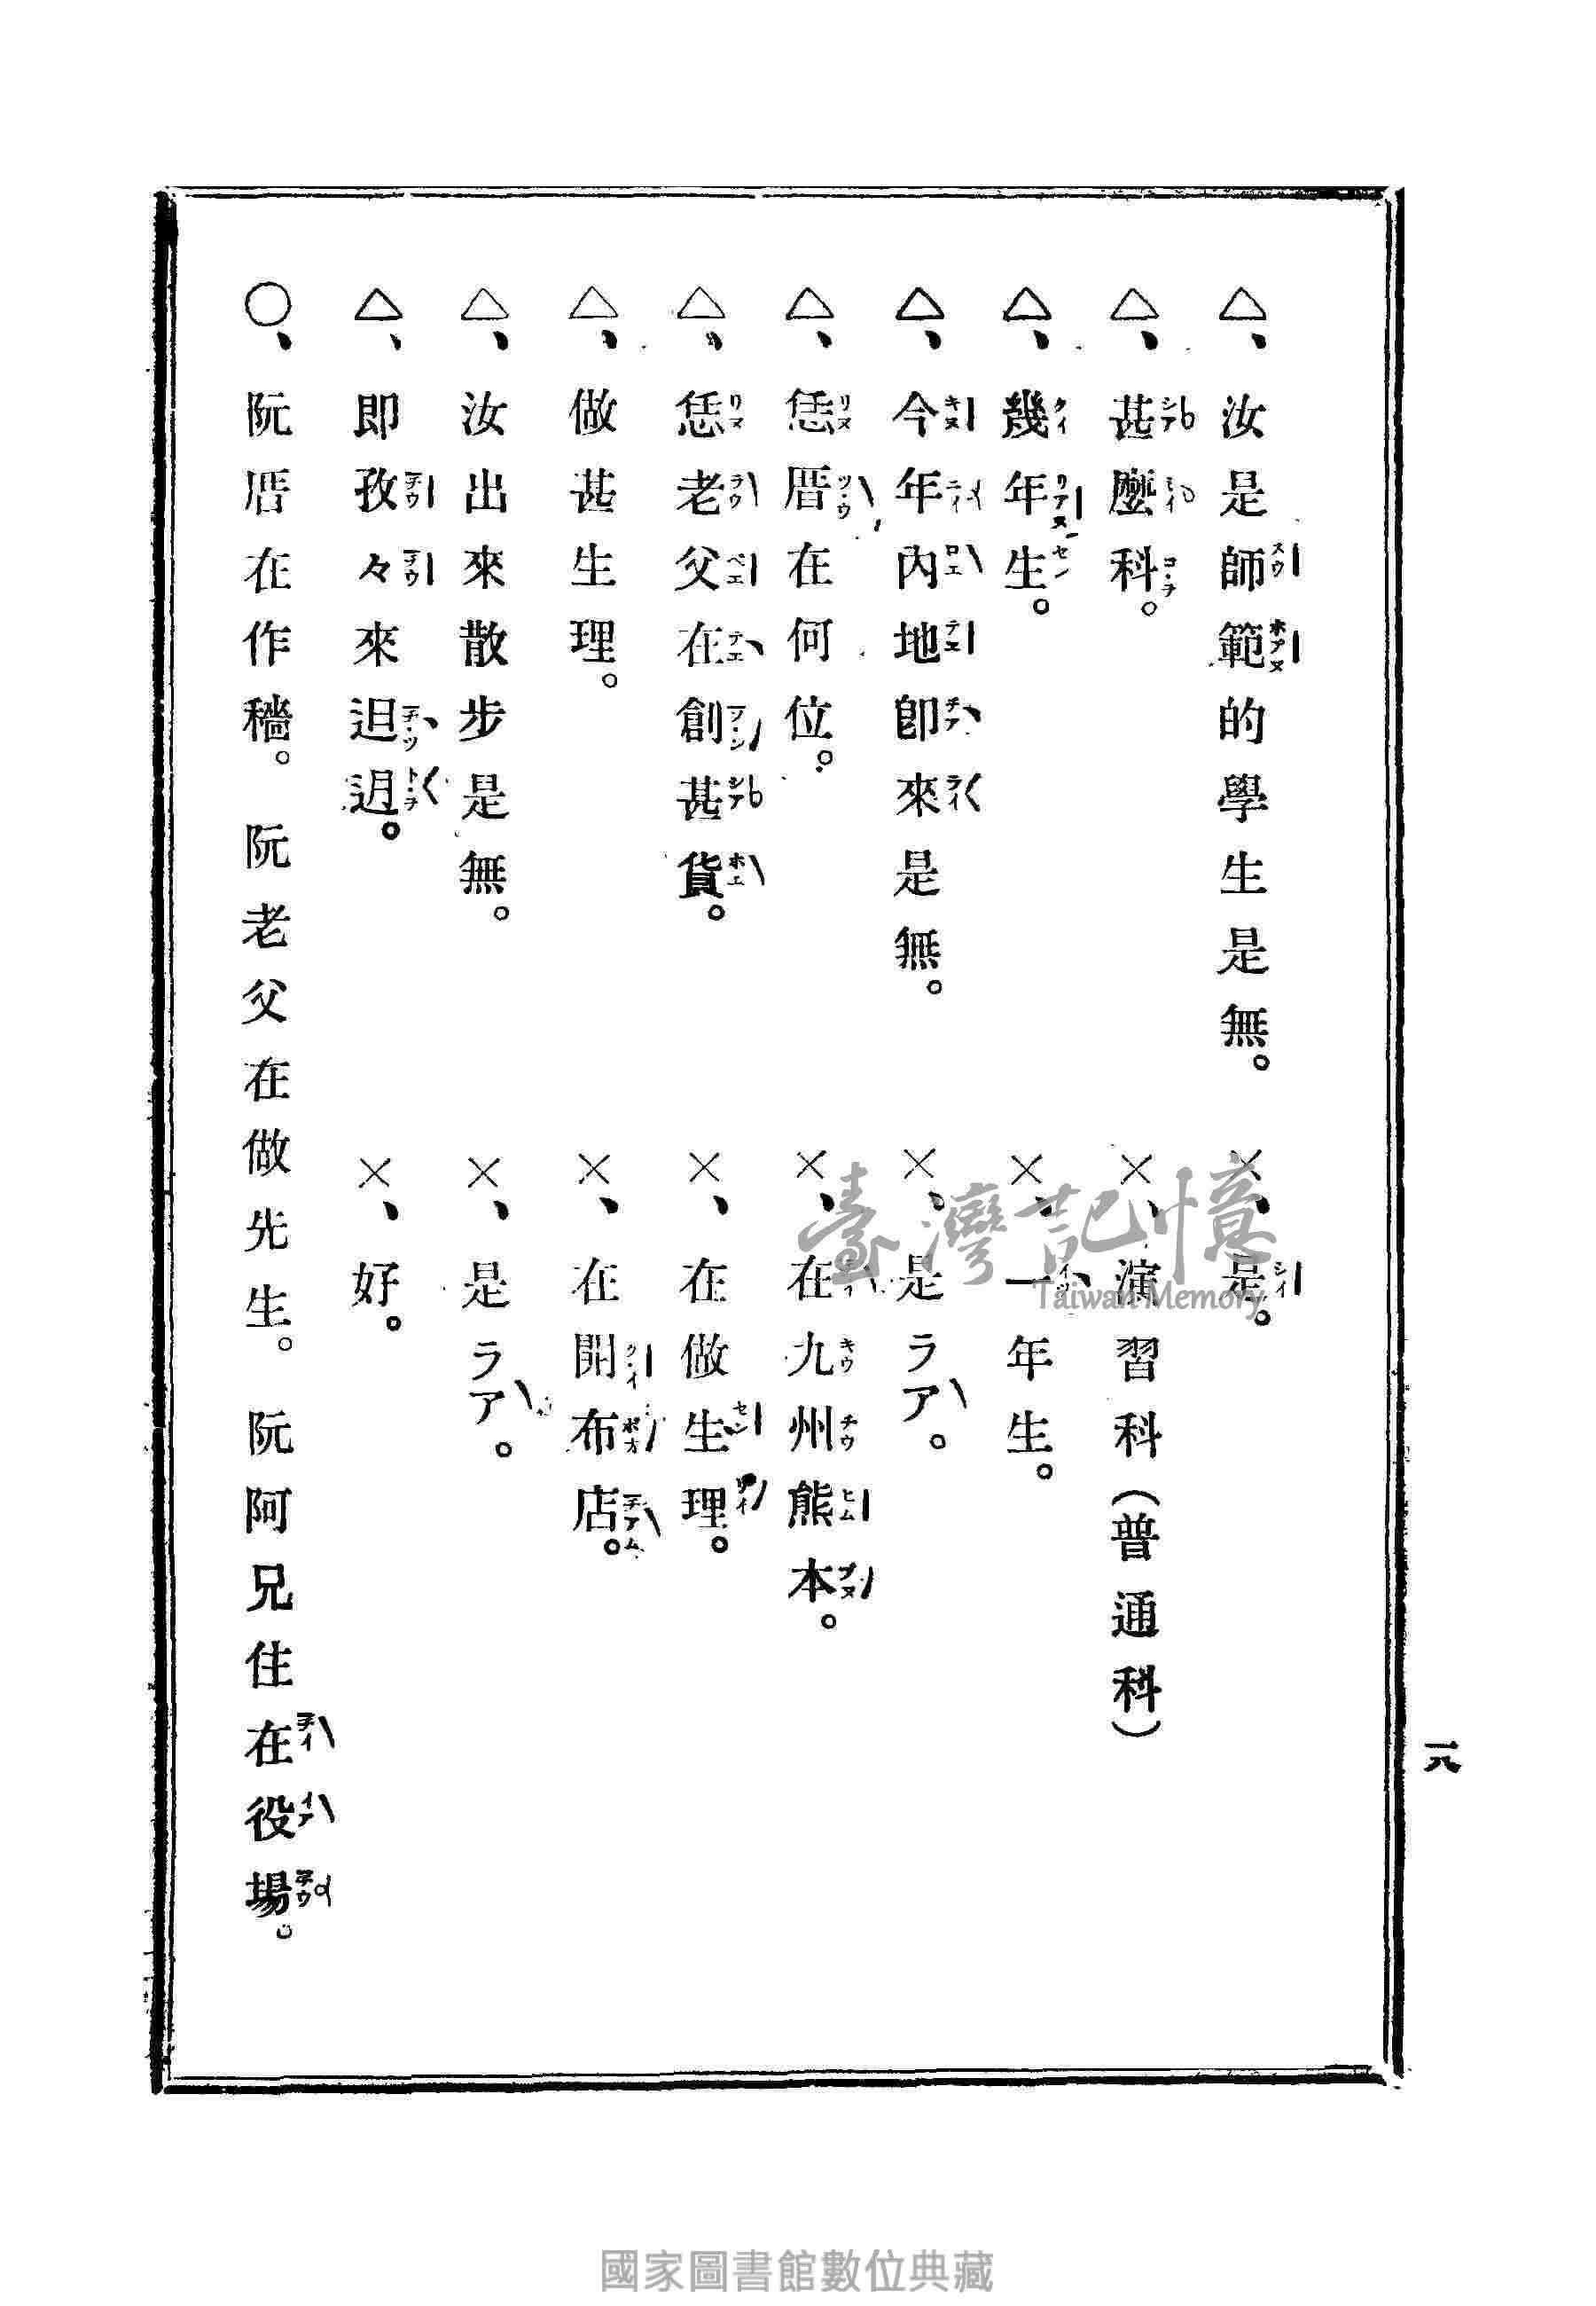 △、汝是師範的學生是無。 ×、是。
△、甚麼科。 ×、演習科(普通科)
△、幾年生。 ×、一年生。
△、今年內地卽來是無。 ×、是ラア。
△、恁厝在何位。 ×、在九州熊本。
△、恁老父在創甚貨。 ×、在做生理。
△、做甚生理。 ×、在開布店。
△、汝出來散步是無。 ×、是ラア。
△、即孜々來𨑨迌。 ×、好。
○、阮厝在作穡。阮老父在做先生。阮阿兄住在役場。
一八
臺灣記憶
Taiwan Memory
國家圖書館數位典藏